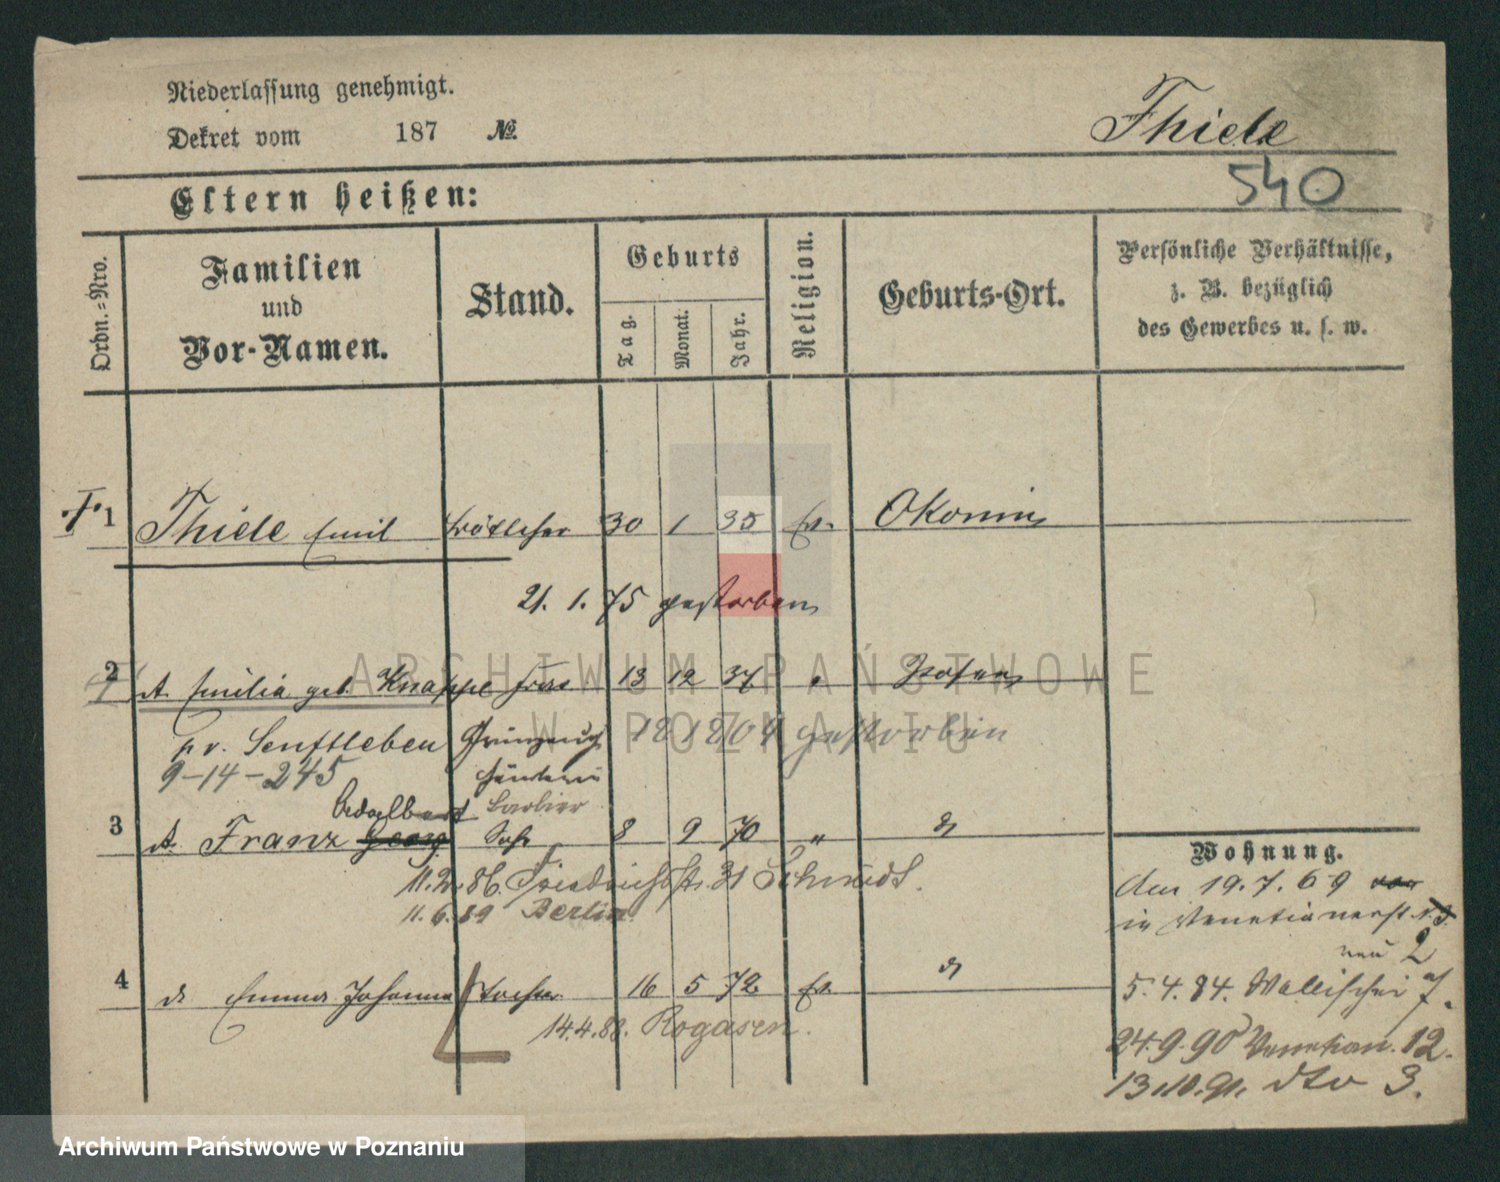 Niederlassung genehmigt.
Dekret vom 187 №
Thiele
540
Eltern heißen:
Ordn.=Nro.
Familien
und
Vor-Namen.
Stand.
Geburts
Tag.
Monat.
Jahr.
Religion.
Geburts-Ort.
Persönliche Verhältnisse,
z. B. bezüglich
des Gewerbes u. s. w.
1 Thiele Emil Böttcher 30 1 35 Ev. Okonin
21. 1. 75 gestorben
2 Emilia geb. Knappe Frau 13 12 37 " Posen
pr. Senftleben
gestorben
9-14-245
Adalbert Barbier
3 Franz Georg Sohn 8 9 70 "
11.2.86. Friedrichstr. 31 Schmidt.
11.6.89 Berlin
4 Emma Johanna Tochter 16 5 72 Ev.
14.4.88. Rogasen.
Wohnung.
den 19.7.69
in Venetianerst.
neu 2
5.4.84. Wallischei
24.9.90 Venetian. 12.
13.10.91. dto 3.
ARCHIWUM PAŃSTWOWE
W POZNANIU
Archiwum Państwowe w Poznaniu